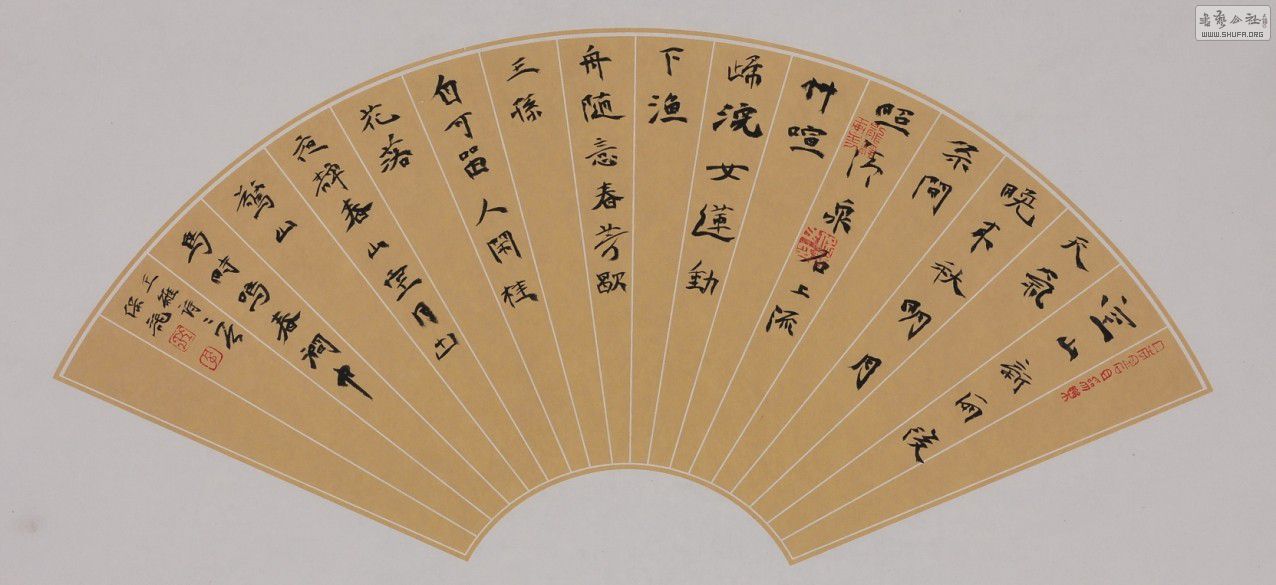 空山新雨後
天氣
曉来秋明月
松間
照清泉石上流
竹喧
歸浣女蓮動
下漁
舟随意春芳歇
王孫
自可留人閑桂
花落
夜静春山空月出
驚山
鳥時鳴春澗中
王維詩二首
書藝公社
WWW.SHUFA.ORG